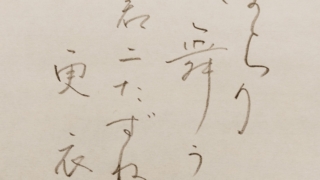 らり
舞う
君ニたずね
更衣